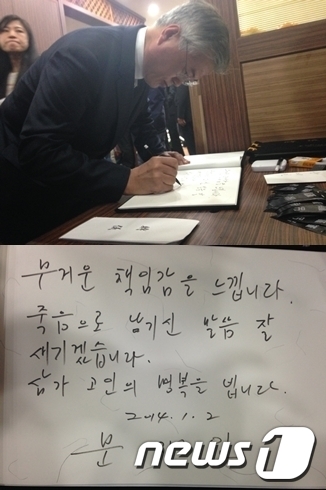 무거운 책임감을 느낍니다.
죽음으로 남기신 말씀 잘
새기겠습니다.
삼가 고인의 명복을 빕니다.
2014. 1. 2
문
news1